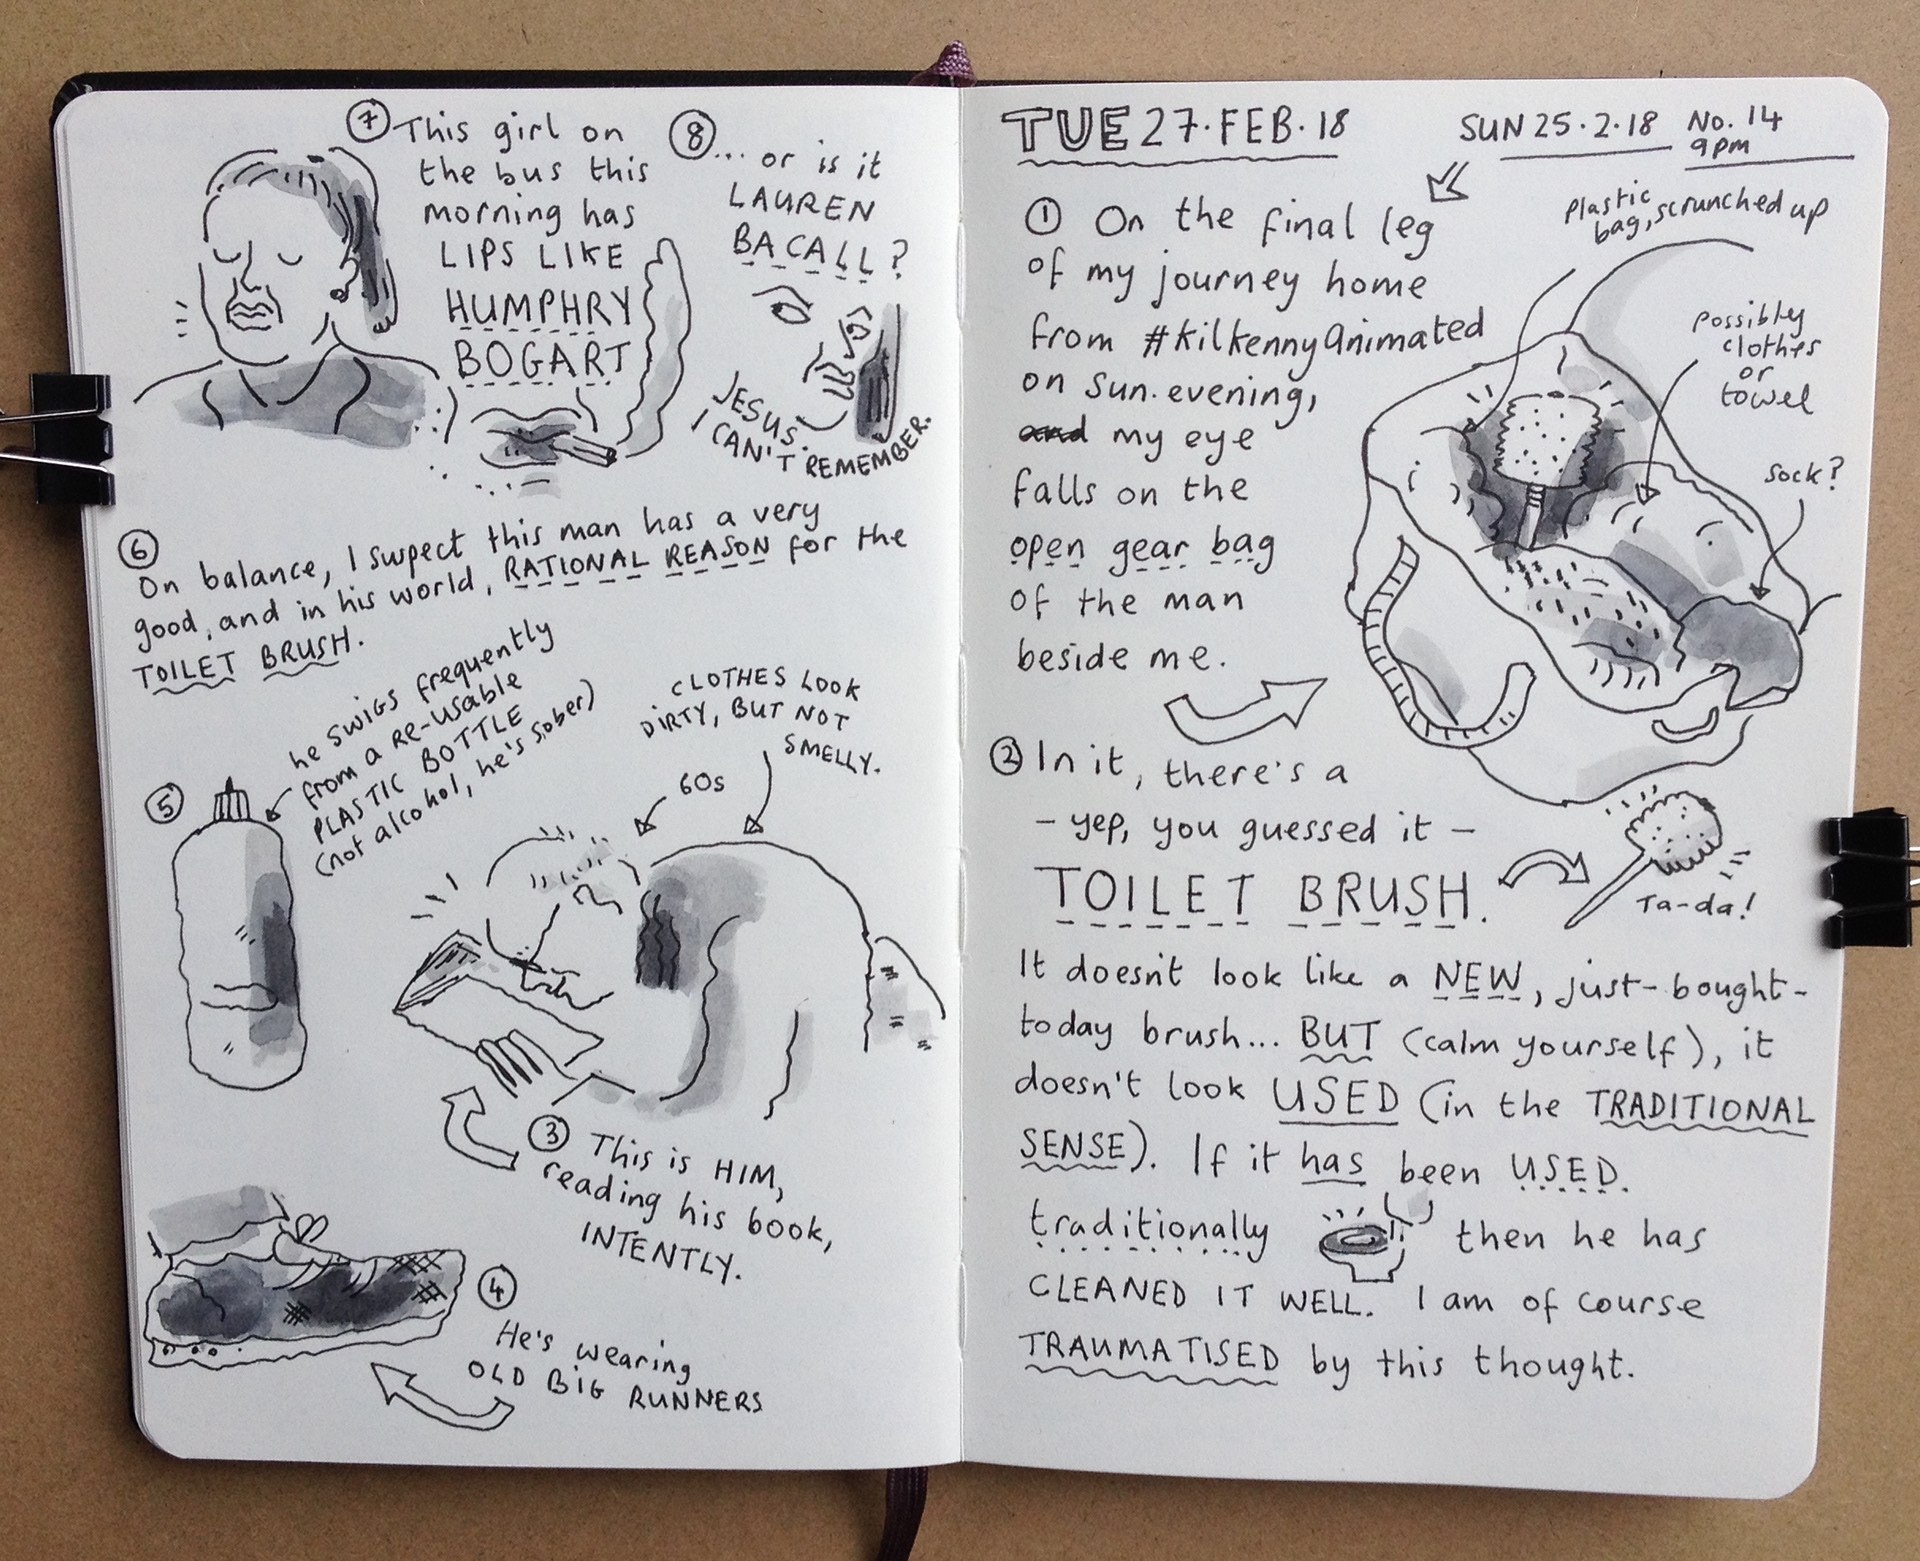 TUE 27·FEB·18
SUN 25·2·18
No. 14
9pm
① On the final leg
of my journey home
from #KilkennyAnimated
on Sun. evening,
and my eye
falls on the
open gear bag
of the man
beside me.
Plastic
bag, scrunched up
Possibly
clothes
or
towel
Sock?
② In it, there's a
- yep, you guessed it -
TOILET BRUSH.
Ta-da!
It doesn't look like a NEW, just-bought-
today brush... BUT (calm yourself), it
doesn't look USED (in the TRADITIONAL
SENSE). If it has been USED
traditionally then he has
CLEANED IT WELL. I am of course
TRAUMATISED by this thought.
③ This is HIM,
reading his book,
INTENTLY.
60s
CLOTHES LOOK
DIRTY, BUT NOT
SMELLY.
④
He's wearing
OLD BIG RUNNERS
⑤
he swigs frequently
from a re-usable
PLASTIC BOTTLE
(not alcohol, he's sober)
⑥
On balance, I suspect this man has a very
good, and in his world, RATIONAL REASON for the
TOILET BRUSH.
⑦ This girl on
the bus this
morning has
LIPS LIKE
HUMPHRY
BOGART
⑧ ... or is it
LAUREN
BACALL?
JESUS.
I CAN'T REMEMBER.